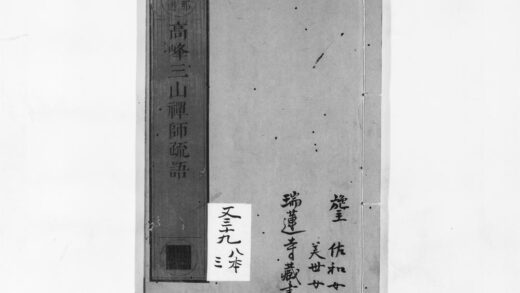 高峰三山禪師疏語
施主 佐和女
美世女
瑞蓮寺藏書
又三十九 八本
三